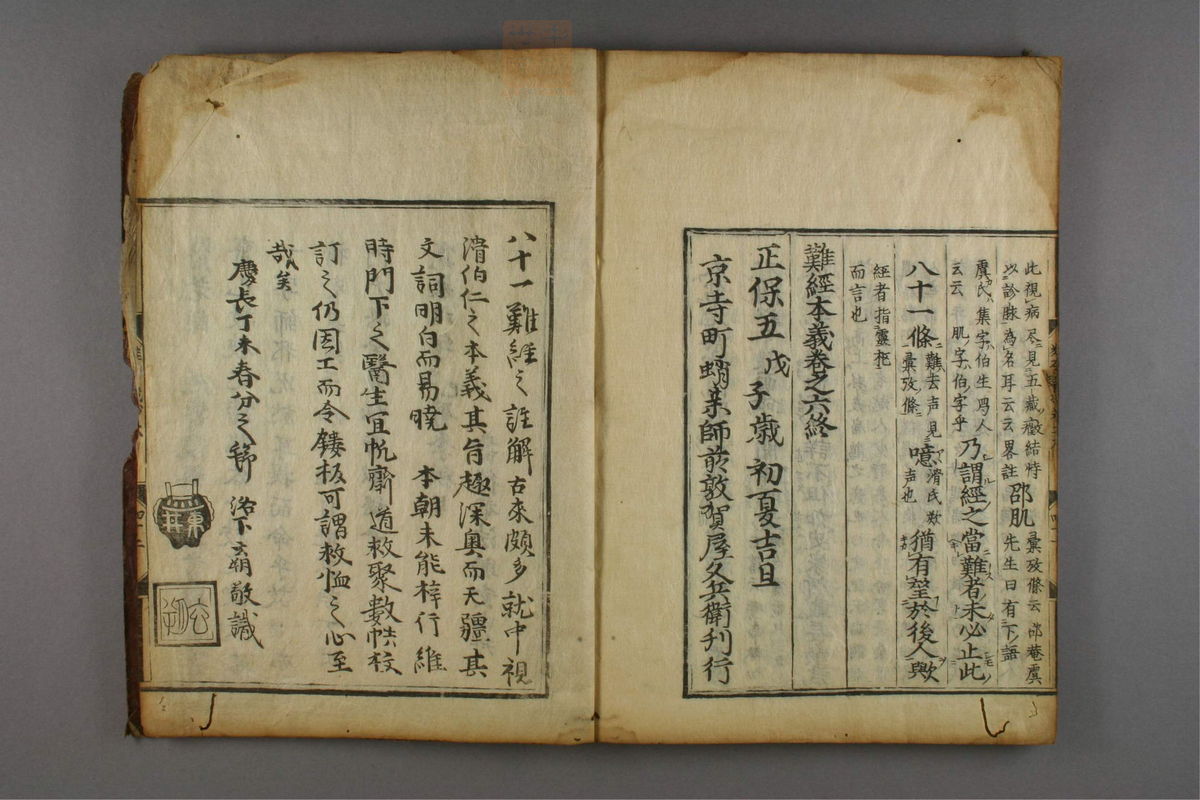 此視病尽見五蔵癥結特
以診脉為名耳云云畧註
邵肌
彙攷條云邵菴虞
先生曰有下語
虞氏集字伯生蜀人
云云 肌字伯字乎
乃謂經之當難者未必止此
八十一條
難去声見
彙攷條
噫
滑氏㪽
声也
猶有望於後人歟
經者指靈柩
而言也
難經本義卷之六終
正保五戊子歳初夏吉旦
京寺町蛸薬師前敦賀屋久兵衛刊行
八十一難經之註解古來頗多就中視
滑伯仁之本義其旨趣深奥而无疆其
文詞明白而易曉 本朝未能梓行維
時門下之醫生宜帆齋道救聚數帙校
訂之仍因工而令鏤板可謂救恤之心至
哉矣
慶長丁未春分之節 洛下玄朔敬識
東井
玄朔